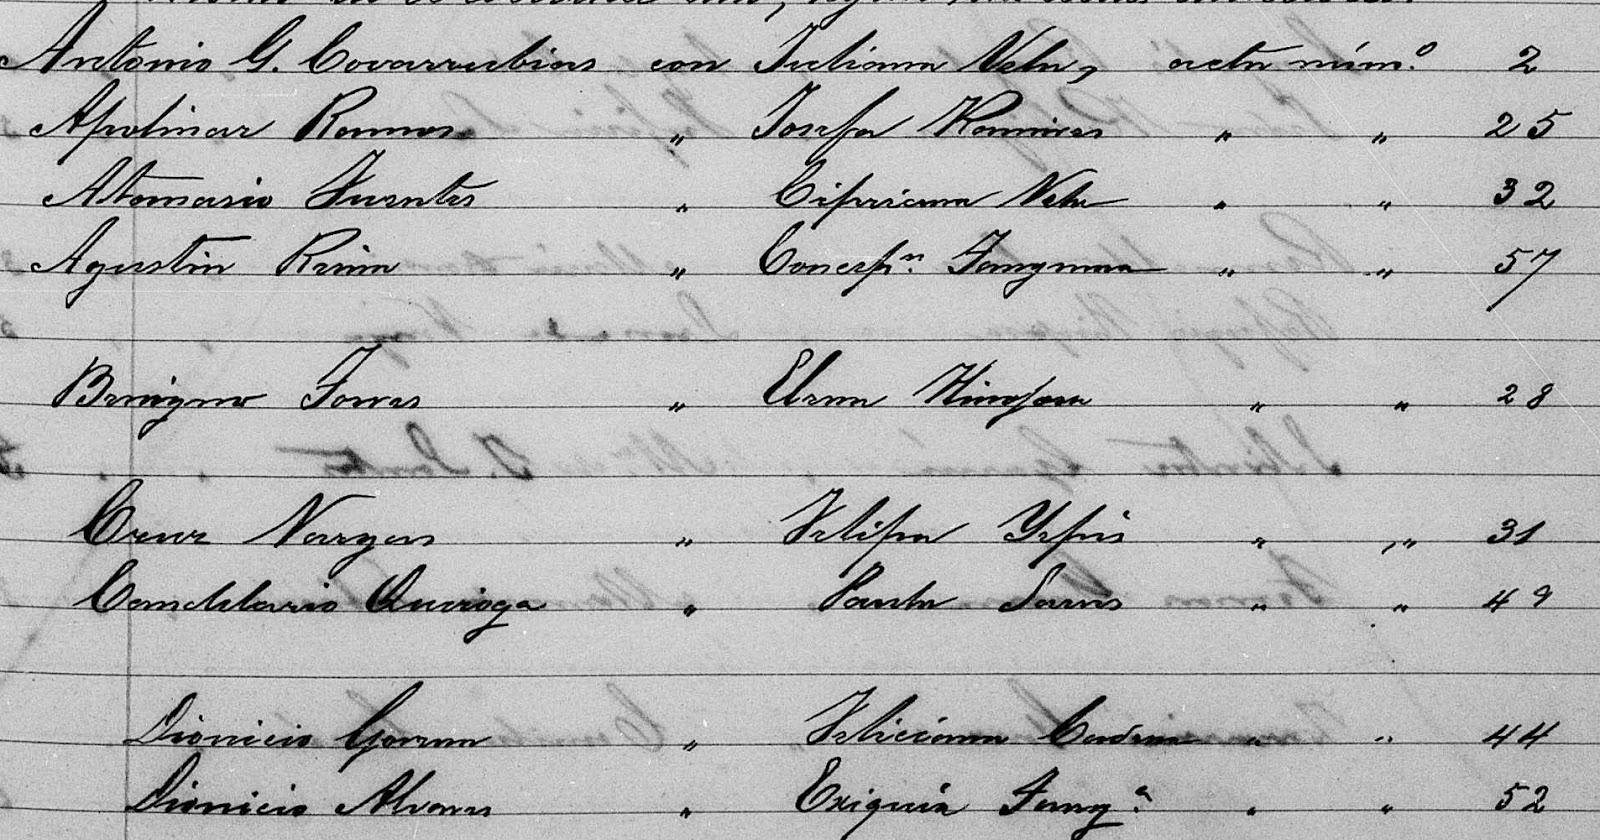 Antonio G. Covarrubias con Juliana Vela, acta núm.º 2
Apolinar Ramos " Josefa Ramires " " 25
Atanasio Fuentes " Cipriana Vela " " 32
Agustin Reina " Concepn. " " 57
Benigno Torres " Elena Hinojosa " " 28
Cruz Vargas " Felipa Yepis " " 31
Candelario Quiroga " Paula " " 49
Dionicio " Feliciana Cadena " " 44
Dionicio Alvares " Exiquia " " 52